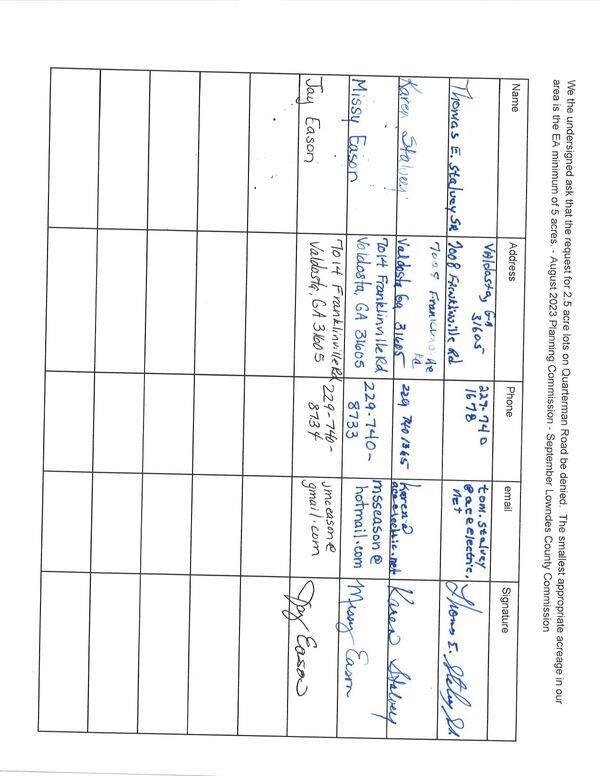 We the undersigned ask that the request for 2.5 acre lots on Quarterman Road be denied. The smallest appropriate acreage in our
area is the EA minimum of 5 acres. - August 2023 Planning Commission - September Lowndes County Commission
Name Address Phone email Signature
Thomas E. Stalvey SR
Valdosta, GA
31605
7008 Franklinville Rd
229-740
1678
tom.stalvey
@aceelectric.
net
Thomas E. Stalvey SR
Karen Stalvey
7008 Franklinville
Rd
Valdosta Ga 31605
229 740 1365
karen@
aceelectric.net
Karen Stalvey
Missy Eason
7014 Franklinville Rd
Valdosta, GA 31605
229-740-
8733
msseason@
hotmail.com
Missy Eason
Jay Eason
7014 Franklinville Rd
Valdosta, GA 31605
229-740-
8734
jmceason@
gmail.com
Jay Eason